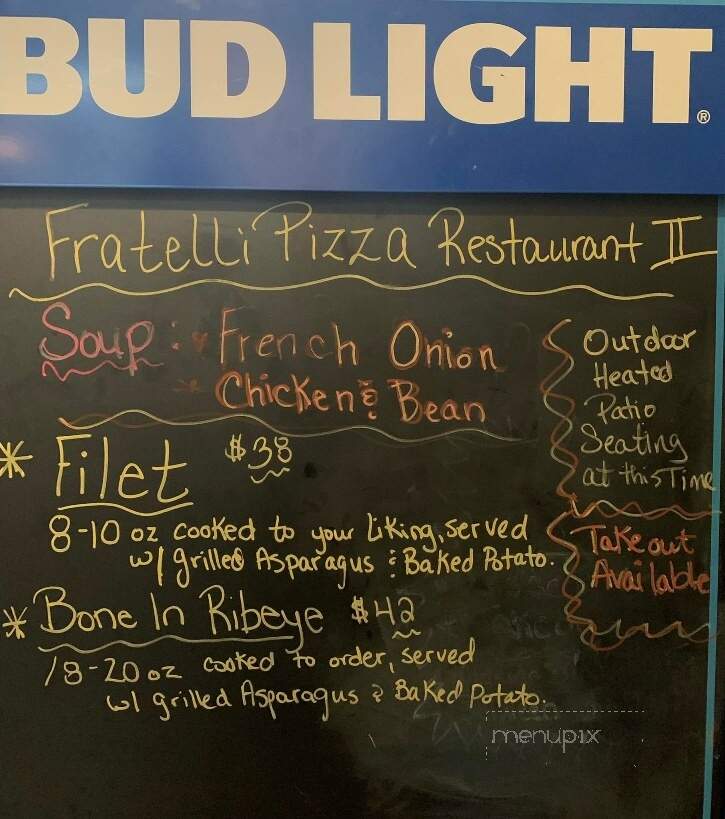 BUD LIGHT®
Fratelli Pizza Restaurant II
Soup: * French Onion
* Chicken & Bean
Outdoor
Heated
Patio
Seating
at this Time
Take out
Available
* Filet $38
8-10 oz cooked to your liking, served
w/ grilled Asparagus & Baked Potato.
* Bone In Ribeye $42
18-20 oz cooked to order, served
w/ grilled Asparagus & Baked Potato.
menupix